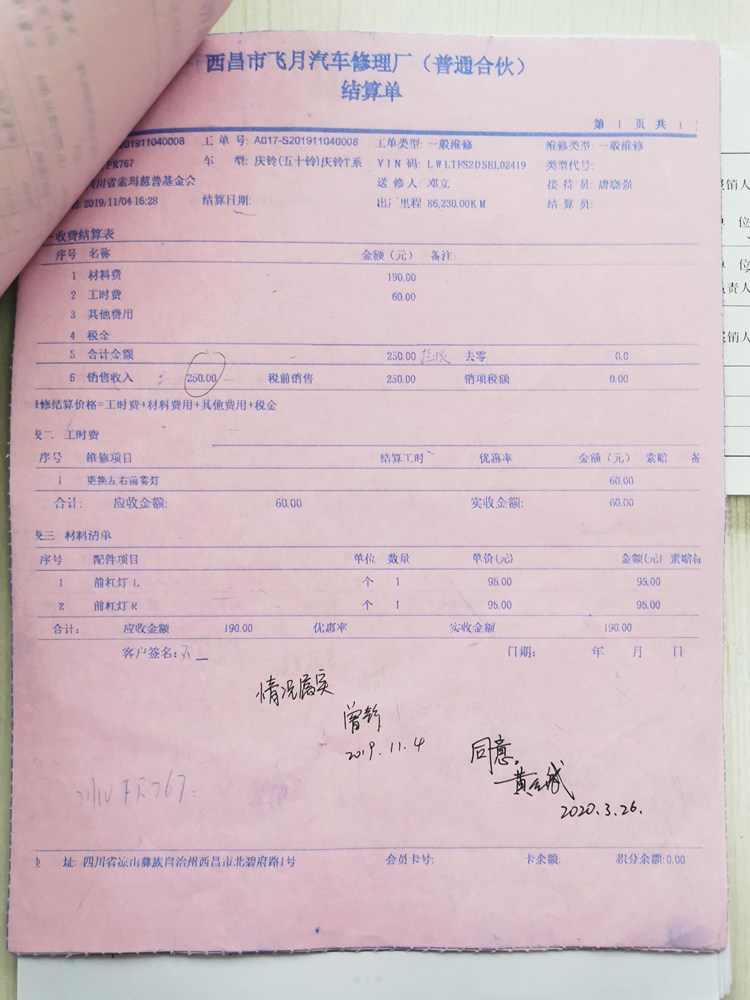 西昌市飞月汽车修理厂（普通合伙）
结算单
第 1 页 共 1
201911040008 工 单 号: A017-S201911040008 工单类型: 一般维修 维修类型: 一般维修
FR767 车 型: 庆铃(五十铃)庆铃T系 VIN 码: LWLTFS2D5EL02419 类型代号:
四川省索玛慈善基金会 送 修 人: 邓立 接 待 员: 唐晓强
2019/11/04 16:28 结算日期: 出厂里程 86,230.00KM 结 算 员:
收费结算表
序号 名称 金额（元） 备注
1 材料费 190.00
2 工时费 60.00
3 其他费用
4 税金
5 合计金额 250.00 去零 0.0
6 销售收入 : 250.00 税前销售 250.00 销项税额 0.00
维修结算价格=工时费+材料费用+其他费用+税金
表二 工时费
序号 维修项目 结算工时 优惠率 金额（元） 索赔 备
1 更换左右前雾灯 60.00
合计: 应收金额: 60.00 实收金额: 60.00
表三 材料清单
序号 配件项目 单位 数量 单价(元) 金额(元) 索赔
1 前杠灯 L 个 1 95.00 95.00
2 前杠灯 R 个 1 95.00 95.00
合计: 应收金额 190.00 优惠率 实收金额 190.00
客户签名: 日期: 年 月 日
情况属实
曾彭
2019.11.4
同意。
2020.3.26.
址: 四川省凉山彝族自治州西昌市北碧府路1号 会员卡号: 卡余额: 积分余额:0.00
报销人
单 位
单 位
负责人
报销人